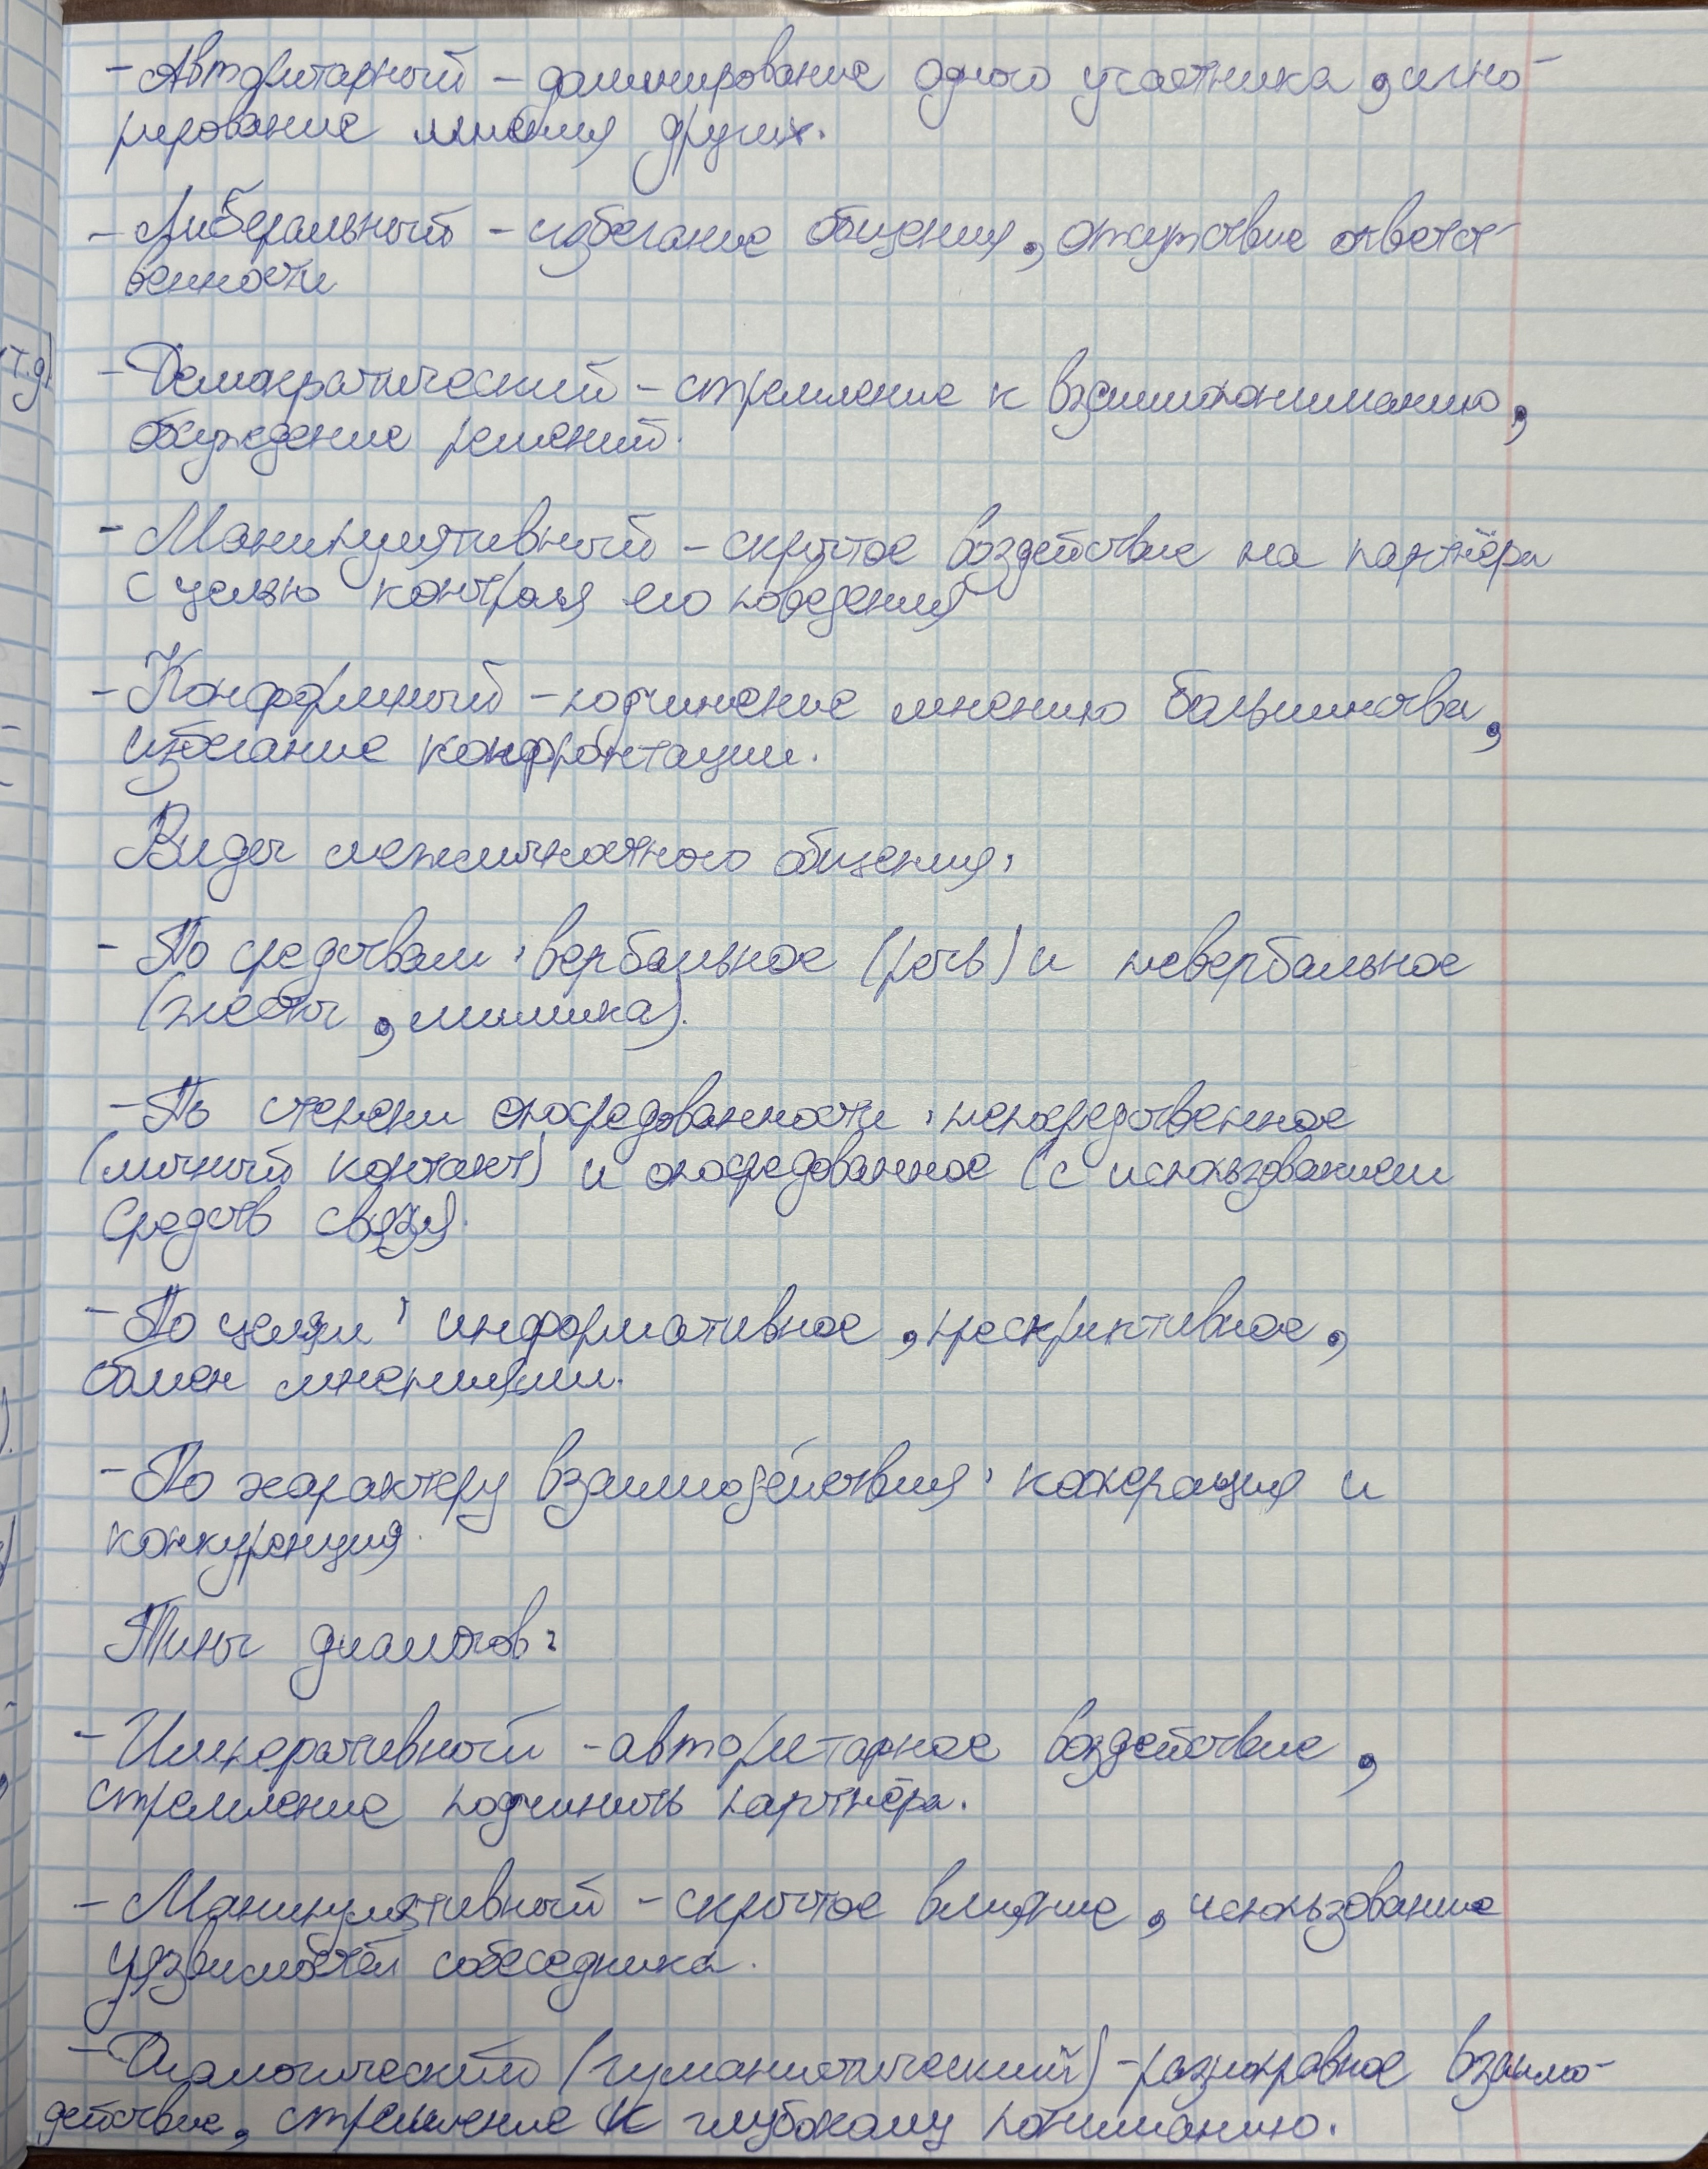 - Авторитарный - доминирование одного участника, игно-
рирование мнения других.
- Либеральный - избегание общения, отсутствие ответст-
венности
- Демократический - стремление к взаимопониманию,
обсуждение решений.
- Манипулятивный - скрытое воздействие на партнёра
с целью контроля его поведения
- Конформный - подчинение мнению большинства,
избегание конфронтации.
Виды межличностного общения:
- По средствам: вербальное (речь) и невербальное
(жесты, мимика).
- По степени опосредованности: непосредственное
(личный контакт) и опосредованное (с использованием
средств связи).
- По целям: информативное, прескриптивное,
обмен мнениями.
- По характеру взаимодействия: кооперация и
конкуренция.
Типы диалогов:
- Императивный - авторитарное воздействие,
стремление подчинить партнёра.
- Манипулятивный - скрытое влияние, использование
уязвимостей собеседника.
- Диалогический (гуманистический) - равноправное взаимо-
действие, стремление к глубокому пониманию.
т.д)